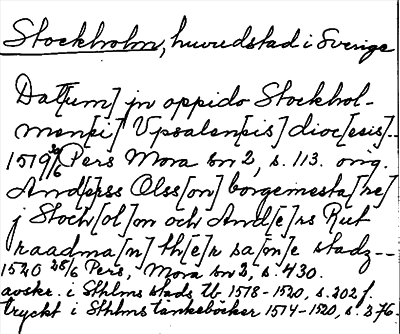 Stockholm, huvudstad i Sverige
Dat[um] jn oppido Stockhol-
men[si] Vpsalen[sis] dioc[esis]--
1519 30/6 Pers Mora bn 2, s. 113. orig.
And[er]ss Olss[on] borgemesta[re]
j Stoch[ol]on och And[e]rs Rut
raadma[n] th[e]r sa[m]e stadz--
1520 28/6 Pers, Mora bn 2, s. 430.
avskr. i Sthlms stads Tb 1518-1520, s. 202 f.
tryckt i Sthlms tankeböcker 1514-1520, s. 376.